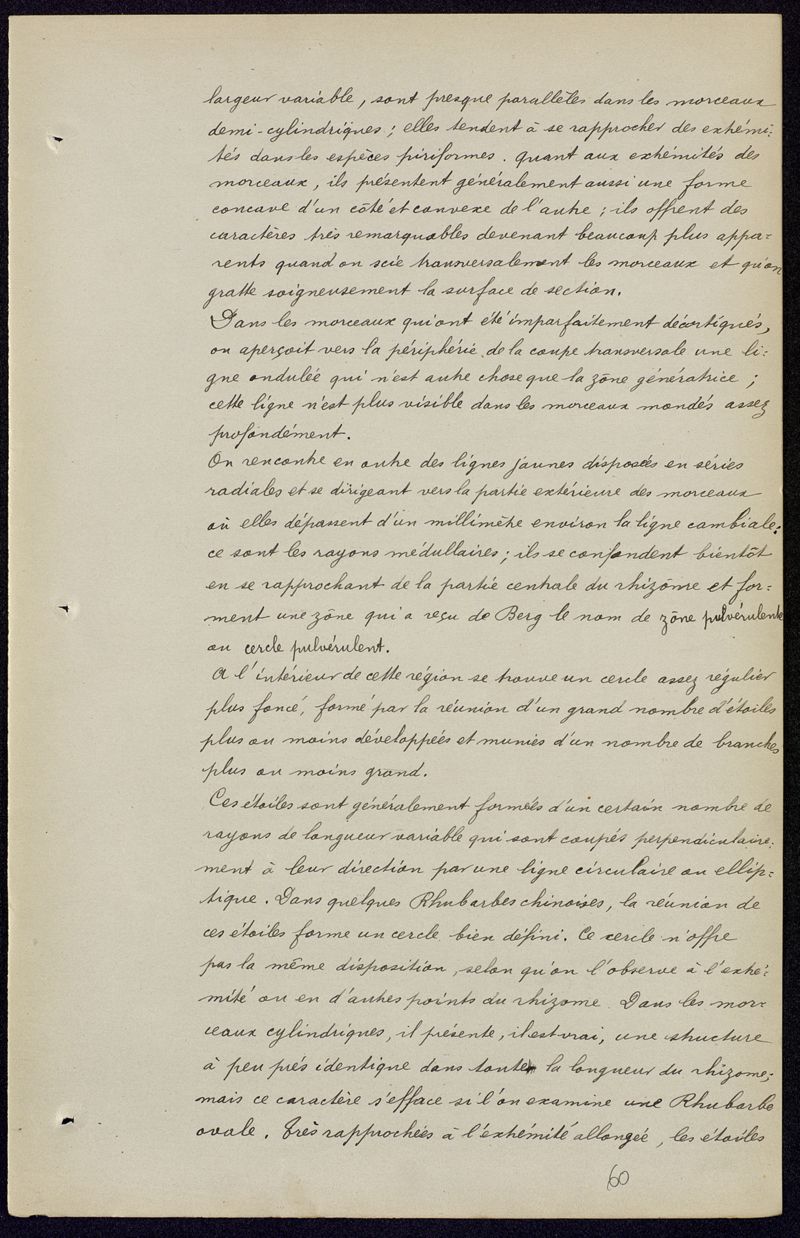 largeur variable, sont presque parallèles dans les morceaux
demi-cylindriques; elles tendent à se rapprocher des extrémi-
tés dans les espèces piriformes. quant aux extrémités des
morceaux, ils présentent généralement aussi une forme
concave d'un côté et convexe de l'autre; ils offrent des
caractères très remarquables devenant beaucoup plus appa-
rents quand on scie transversalement les morceaux et qu'on
gratte soigneusement la surface de section.
Dans les morceaux qui ont été imparfaitement décortiqués,
on aperçoit vers la périphérie de la coupe transversale une li-
gne ondulée qui n'est autre chose que la zône génératrice;
cette ligne n'est plus visible dans les morceaux mondés assez
profondément.
On rencontre en outre des lignes jaunes disposées en séries
radiales et se dirigeant vers la partie extérieure des morceaux
où elles dépassent d'un millimètre environ la ligne cambiale:
ce sont les rayons médullaires; ils se confondent bientôt
en se rapprochant de la partie centrale du rhizôme et for-
ment une zône qui a reçu de Berg le nom de zône pulvérulente
ou cercle pulvérulent.
A l'intérieur de cette région se trouve un cercle assez régulier
plus foncé, formé par la réunion d'un grand nombre d'étoiles
plus ou moins développées et munies d'un nombre de branches
plus ou moins grand.
Ces étoiles sont généralement formées d'un certain nombre de
rayons de longueur variable qui sont coupés perpendiculaire-
ment à leur direction par une ligne circulaire ou ellip-
tique. Dans quelques Rhubarbes chinoises, la réunion de
ces étoiles forme un cercle bien défini. Ce cercle n'offre
pas la même disposition, selon qu'on l'observe à l'extré-
mité ou en d'autres points du rhizome. Dans les mor-
ceaux cylindriques, il présente, il est vrai, une structure
à peu près identique dans toute la longueur du rhizome;
mais ce caractère s'efface si l'on examine une Rhubarbe
ovale. Très rapprochées à l'extrémité allongée, les étoiles
60